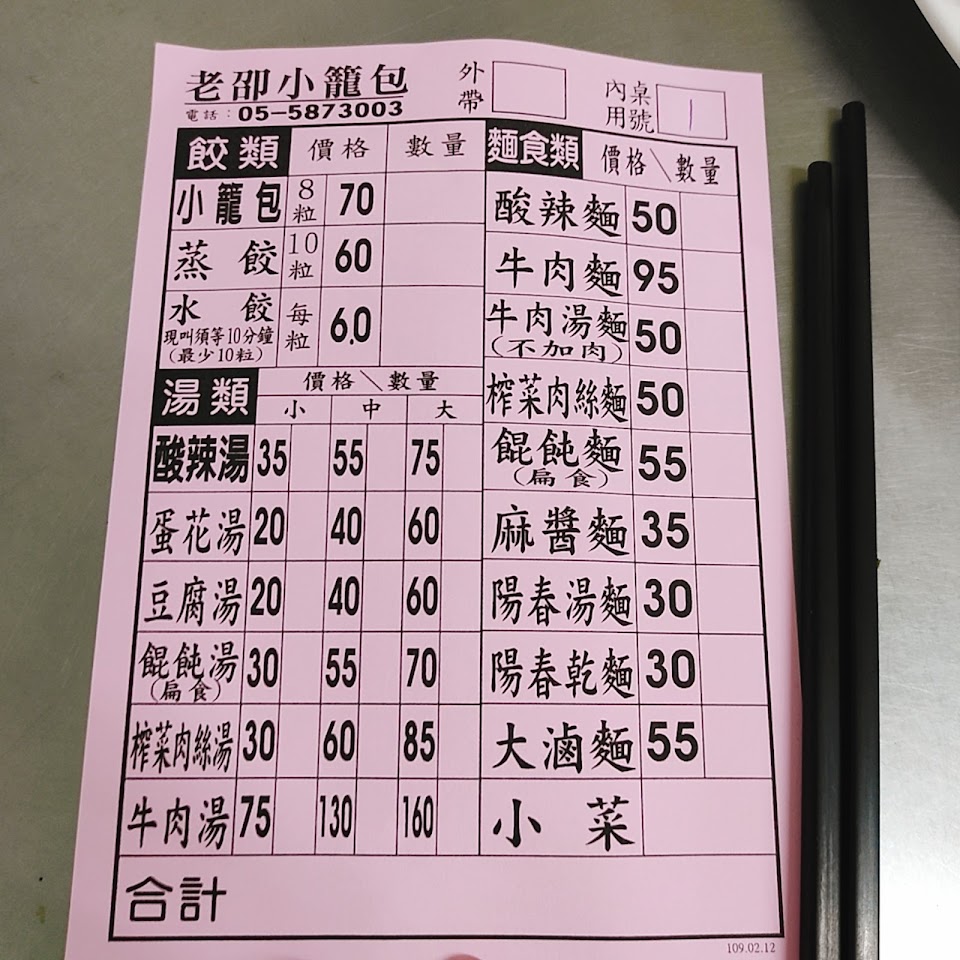 老卲小籠包
電話：05-5873003
外帶
內用 桌號 1
餃類 價格 數量
小籠包 8粒 70
蒸餃 10粒 60
水餃 每粒 6.0
現叫須等10分鐘
(最少10粒)
湯類 價格\數量
小 中 大
酸辣湯 35 55 75
蛋花湯 20 40 60
豆腐湯 20 40 60
餛飩湯 30 55 70
(扁食)
榨菜肉絲湯 30 60 85
牛肉湯 75 130 160
麵食類 價格\數量
酸辣麵 50
牛肉麵 95
牛肉湯麵 50
(不加肉)
榨菜肉絲麵 50
餛飩麵 55
(扁食)
麻醬麵 35
陽春湯麵 30
陽春乾麵 30
大滷麵 55
小菜
合計
109.02.12